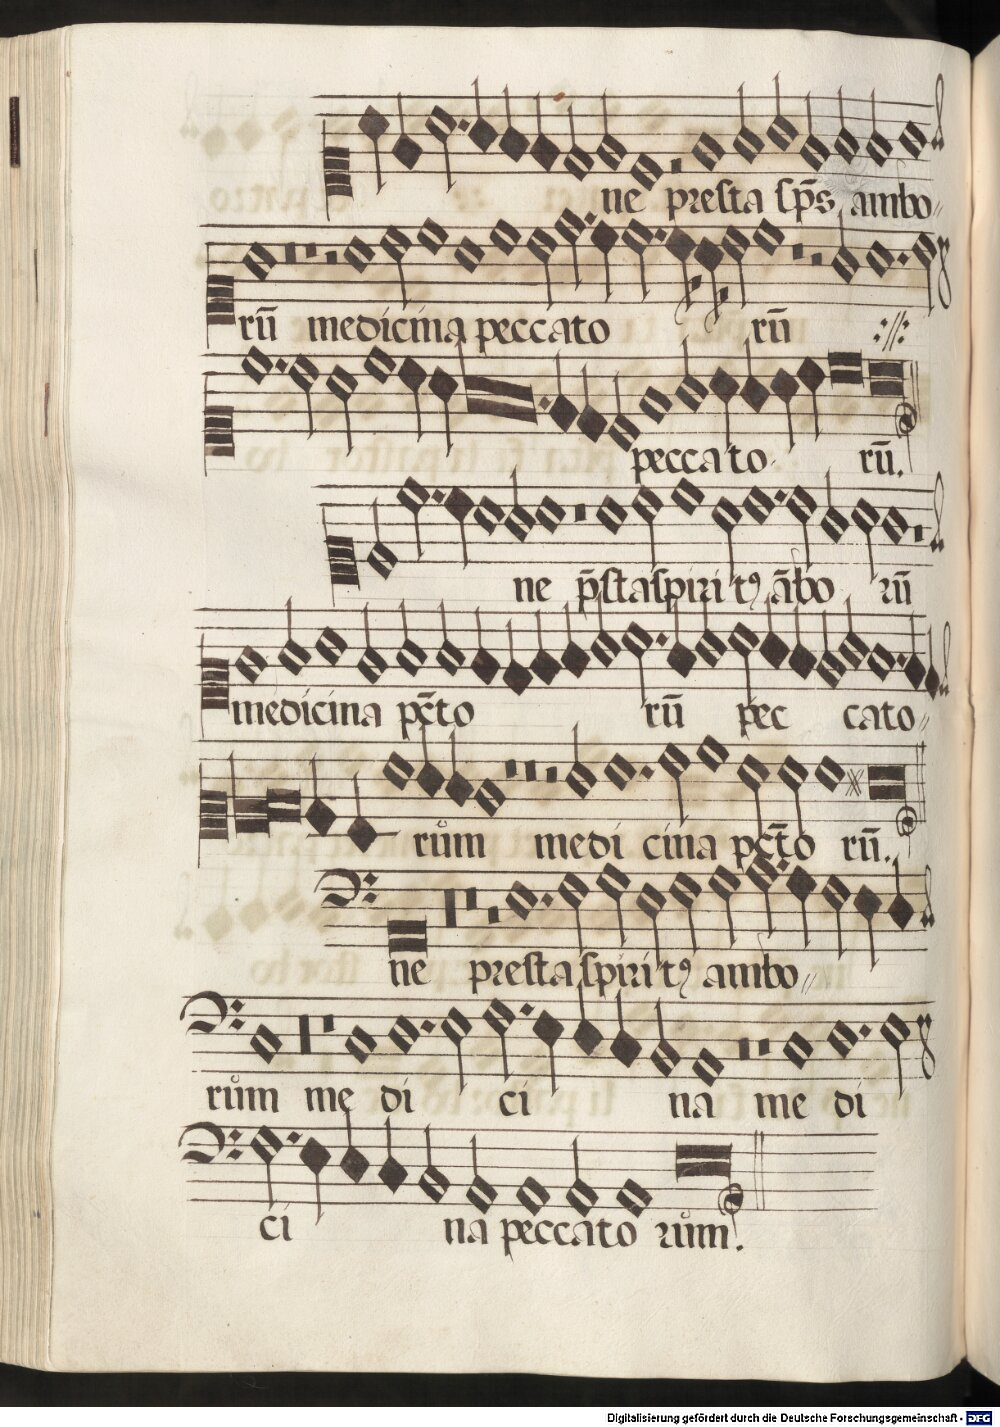 ne presta sp̄s ambo〃
rū medicina peccato rū
peccato rū.
ne p̄sta spiritꝰ ābo rū
medicina pc̄to rū pec cato〃
rům medi cina pc̄to rū.
ne presta spiritꝰ ambo〃
rům me di ci na me di
ci na peccato růM.
Digitalisierung gefördert durch die Deutsche Forschungsgemeinschaft - DFG